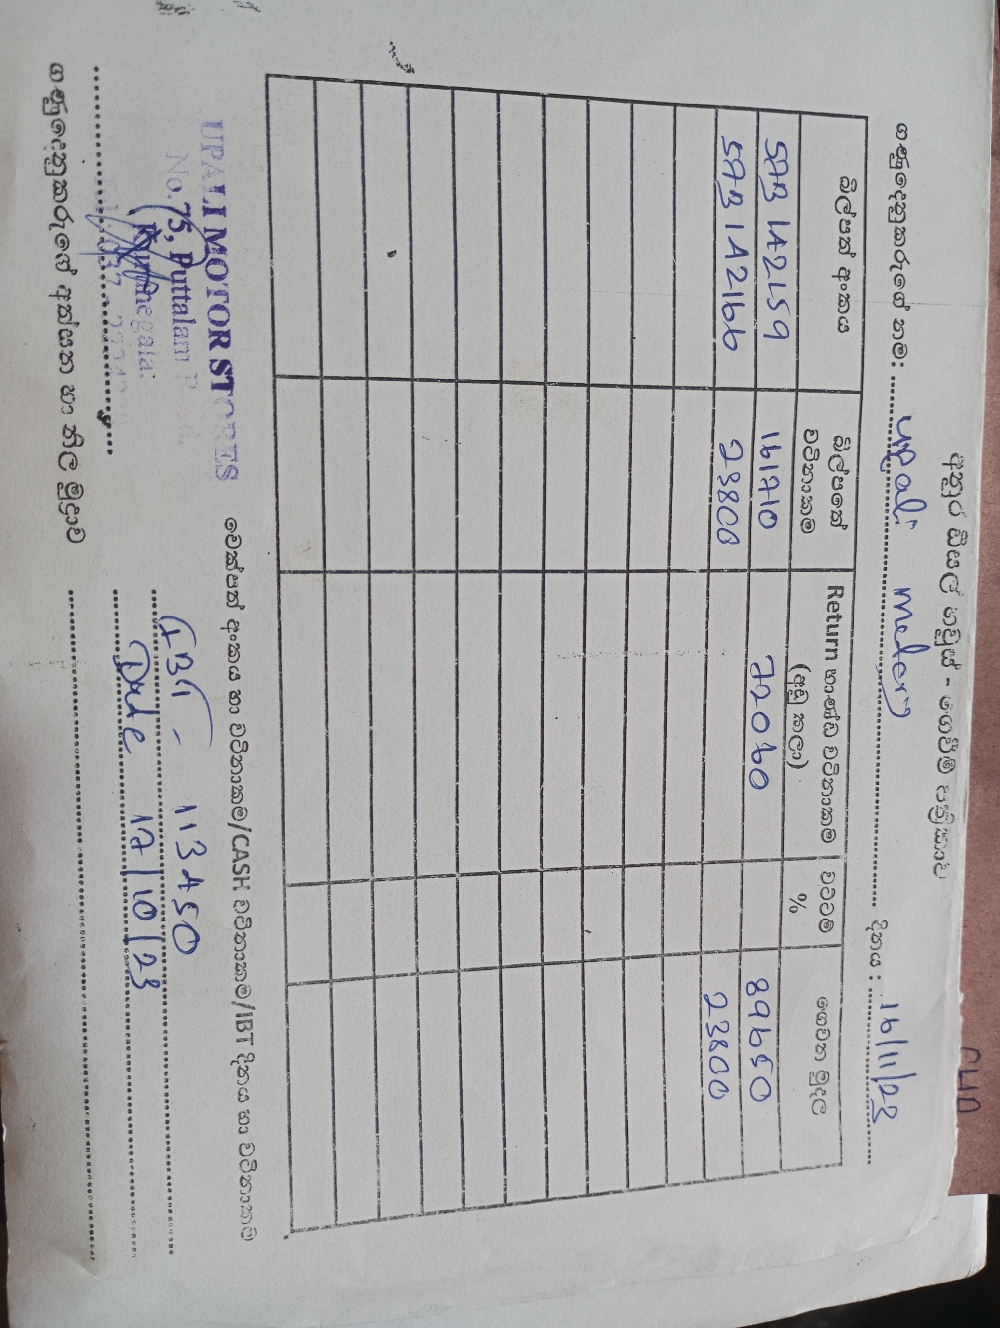 අනුර ඩීසල් හවුස් - ගෙවීම් පත්‍රිකාව
ගණුදෙනුකරුගේ නම: upali දිනය : 16/11/23
බිල්පත් අංකය බිල්පතේ වටිනාකම Return භාණ්ඩ වටිනාකම (අඩු කලා) වට්ටම් % ගෙවන මුදල
161710 72060 89650
23800 23800
චෙක්පත් අංකය හා වටිනාකම/CASH වටිනාකම/IBT දිනය හා වටිනාකම
IBT - 113450
Date 17/10/23
UPALI MOTOR STORES
No. 75, Puttalam
Kurunegala.
ගණුදෙනුකරුගේ අත්සන හා නිල මුද්‍රාව